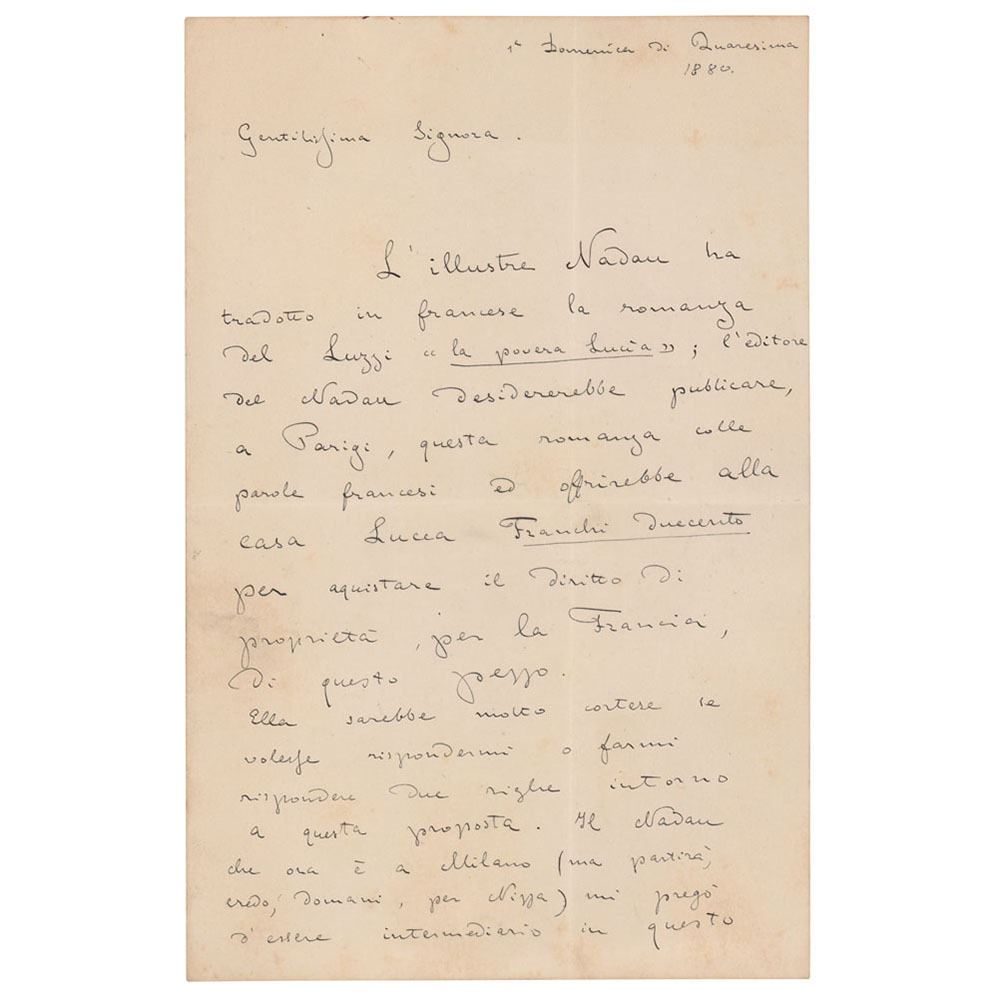 1ª Domenica di Quaresima
1880.
Gentilissima Signora.
L'illustre Nadau ha
tradotto in francese la romanza
del Luzzi « la povera Lucia » ; l'editore
del Nadau desidererebbe publicare,
a Parigi, questa romanza colle
parole francesi ed offrirebbe alla
casa Lucca Franchi duecento
per aquistare il diritto di
proprietà, per la Francia,
di questo pezzo.
Ella sarebbe molto cortese se
volesse rispondermi o farmi
rispondere due righe intorno
a questa proposta. Il Nadau
che ora è a Milano (ma partirà,
credo, domani, per Nizza) mi pregò
d'essere intermediario in questo